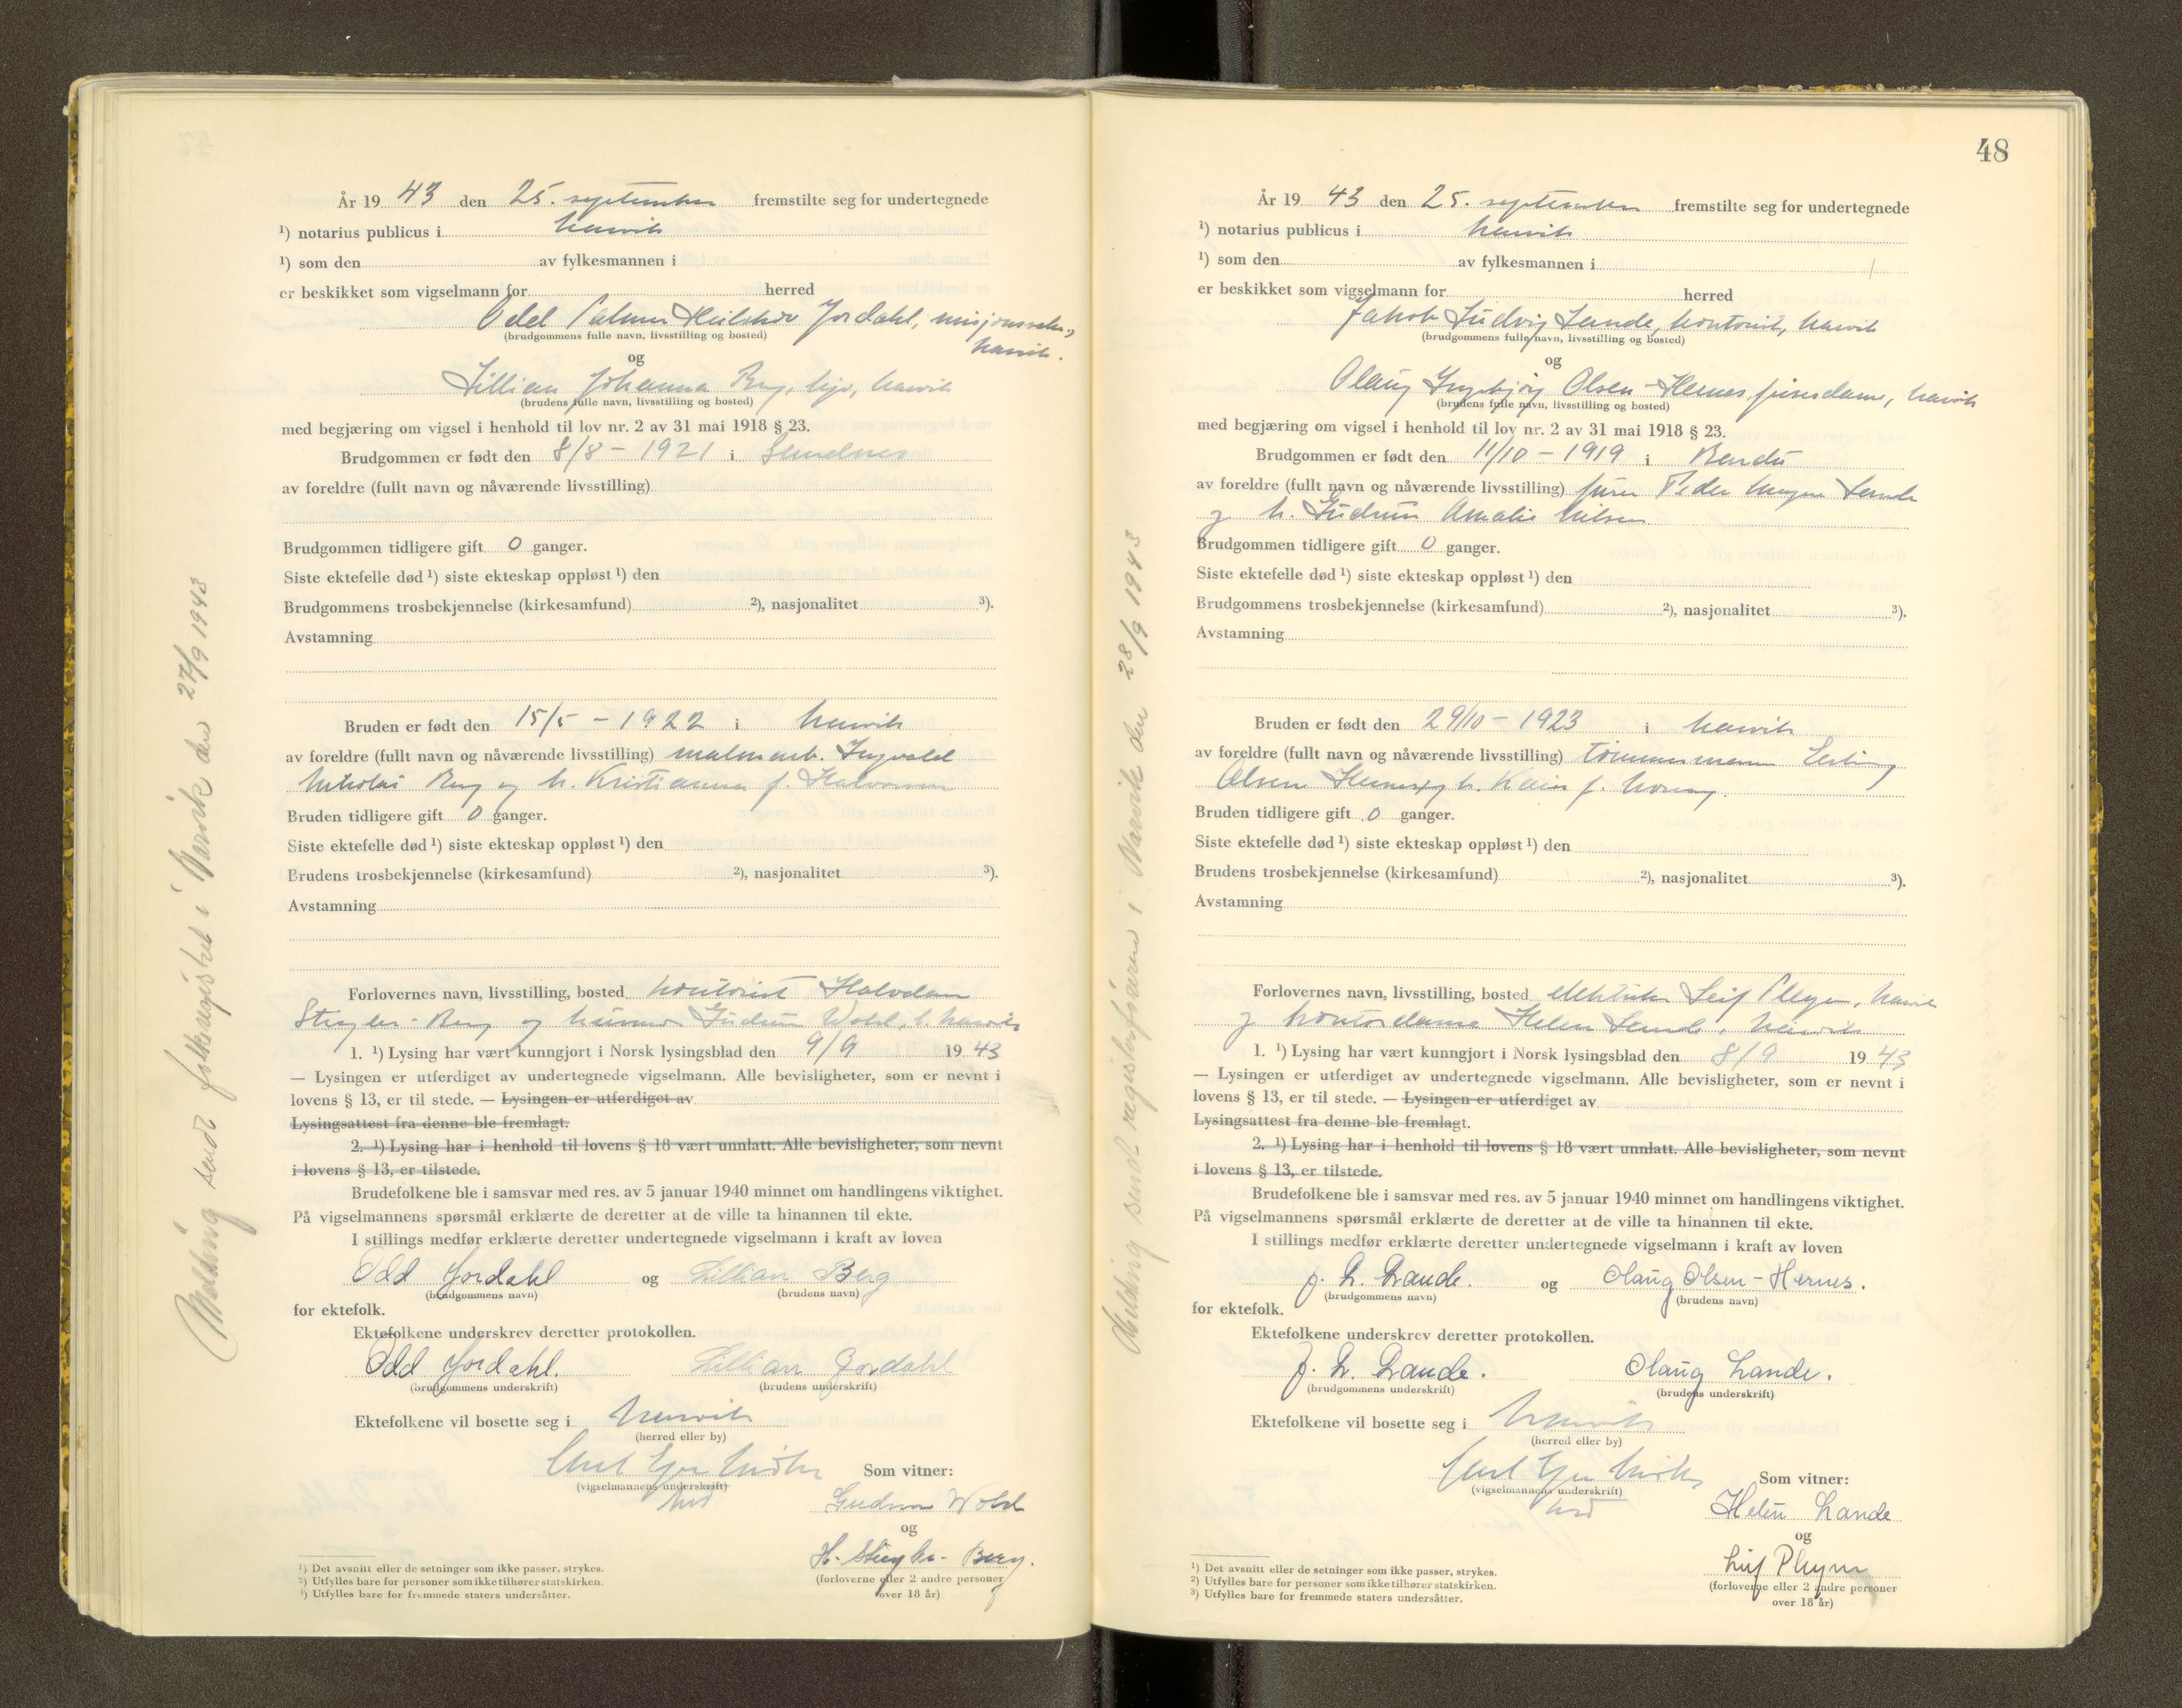 År 19 43 den 25. september fremstilte seg for undertegnede
¹) notarius publicus i Narvik
¹) som den av fylkesmannen i
er beskikket som vigselmann for herred
Odd Jordahl,
(brudgommens fulle navn, livsstilling og bosted)
Narvik.
og
Lillian Johanna Berg, Narvik
(brudens fulle navn, livsstilling og bosted)
med begjæring om vigsel i henhold til lov nr. 2 av 31 mai 1918 § 23.
Brudgommen er født den 8/8 - 1921 i
av foreldre (fullt navn og nåværende livsstilling)
Brudgommen tidligere gift 0 ganger.
Siste ektefelle død ¹) siste ekteskap oppløst ¹) den
Brudgommens trosbekjennelse (kirkesamfund) ²), nasjonalitet ³).
Avstamning
Bruden er født den 15/5 - 1922 i Narvik
av foreldre (fullt navn og nåværende livsstilling) malmarb. Ingvald
Nikolai Berg og h. Kristianna f. Halvorsen
Bruden tidligere gift 0 ganger.
Siste ektefelle død ¹) siste ekteskap oppløst ¹) den
Brudens trosbekjennelse (kirkesamfund) ²), nasjonalitet ³).
Avstamning
Forlovernes navn, livsstilling, bosted kontorist Halvdan
Berg og Gudrun Wold, b. Narvik
1. ¹) Lysing har vært kunngjort i Norsk lysingsblad den 9/9 19 43
— Lysingen er utferdiget av undertegnede vigselmann. Alle bevisligheter, som er nevnt i
lovens § 13, er til stede. — Lysingen er utferdiget av
Lysingsattest fra denne ble fremlagt.
2. ¹) Lysing har i henhold til lovens § 18 vært unnlatt. Alle bevisligheter, som nevnt
i lovens § 13, er tilstede.
Brudefolkene ble i samsvar med res. av 5 januar 1940 minnet om handlingens viktighet.
På vigselmannens spørsmål erklærte de deretter at de ville ta hinannen til ekte.
I stillings medfør erklærte deretter undertegnede vigselmann i kraft av loven
Odd Jordahl og Lillian Berg
(brudgommens navn) (brudens navn)
for ektefolk.
Ektefolkene underskrev deretter protokollen.
Odd Jordahl. Lillian Jordahl
(brudgommens underskrift) (brudens underskrift)
Ektefolkene vil bosette seg i Narvik
(herred eller by)
Som vitner:
(vigselmannens underskrift)
Gudrun Wold
og
H. Berg.
(forloverne eller 2 andre personer
over 18 år)
¹) Det avsnitt eller de setninger som ikke passer, strykes.
²) Utfylles bare for personer som ikke tilhører statskirken.
³) Utfylles bare for fremmede staters undersåtter.
Melding sendt folkeregistret i Narvik den 27/9 1943
48
År 19 43 den 25. september fremstilte seg for undertegnede
¹) notarius publicus i Narvik
¹) som den av fylkesmannen i
er beskikket som vigselmann for herred
Jakob Ludvig Lande, kontorist, Narvik
(brudgommens fulle navn, livsstilling og bosted)
og
Olaug Ingebjørg Olsen-Hernes, Narvik
(brudens fulle navn, livsstilling og bosted)
med begjæring om vigsel i henhold til lov nr. 2 av 31 mai 1918 § 23.
Brudgommen er født den 11/10 - 1919 i
av foreldre (fullt navn og nåværende livsstilling) Peder Lande
og h. Gudrun Amalie Nilsen
Brudgommen tidligere gift 0 ganger.
Siste ektefelle død ¹) siste ekteskap oppløst ¹) den
Brudgommens trosbekjennelse (kirkesamfund) ²), nasjonalitet ³).
Avstamning
Bruden er født den 29/10 - 1923 i Narvik
av foreldre (fullt navn og nåværende livsstilling) tømmermann
Olsen Hernes og h.
Bruden tidligere gift 0 ganger.
Siste ektefelle død ¹) siste ekteskap oppløst ¹) den
Brudens trosbekjennelse (kirkesamfund) ²), nasjonalitet ³).
Avstamning
Forlovernes navn, livsstilling, bosted elektriker Leif Pleym, Narvik
og kontordame Helen Lande, Narvik
1. ¹) Lysing har vært kunngjort i Norsk lysingsblad den 8/9 19 43
— Lysingen er utferdiget av undertegnede vigselmann. Alle bevisligheter, som er nevnt i
lovens § 13, er til stede. — Lysingen er utferdiget av
Lysingsattest fra denne ble fremlagt.
2. ¹) Lysing har i henhold til lovens § 18 vært unnlatt. Alle bevisligheter, som nevnt
i lovens § 13, er tilstede.
Brudefolkene ble i samsvar med res. av 5 januar 1940 minnet om handlingens viktighet.
På vigselmannens spørsmål erklærte de deretter at de ville ta hinannen til ekte.
I stillings medfør erklærte deretter undertegnede vigselmann i kraft av loven
J. L. Lande. og Olaug Olsen-Hernes.
(brudgommens navn) (brudens navn)
for ektefolk.
Ektefolkene underskrev deretter protokollen.
J. L. Lande. Olaug Lande.
(brudgommens underskrift) (brudens underskrift)
Ektefolkene vil bosette seg i Narvik
(herred eller by)
Som vitner:
(vigselmannens underskrift)
Helen Lande
og
Leif Pleym
(forloverne eller 2 andre personer
over 18 år)
¹) Det avsnitt eller de setninger som ikke passer, strykes.
²) Utfylles bare for personer som ikke tilhører statskirken.
³) Utfylles bare for fremmede staters undersåtter.
Melding sendt registerføreren i Narvik den 28/9 1943